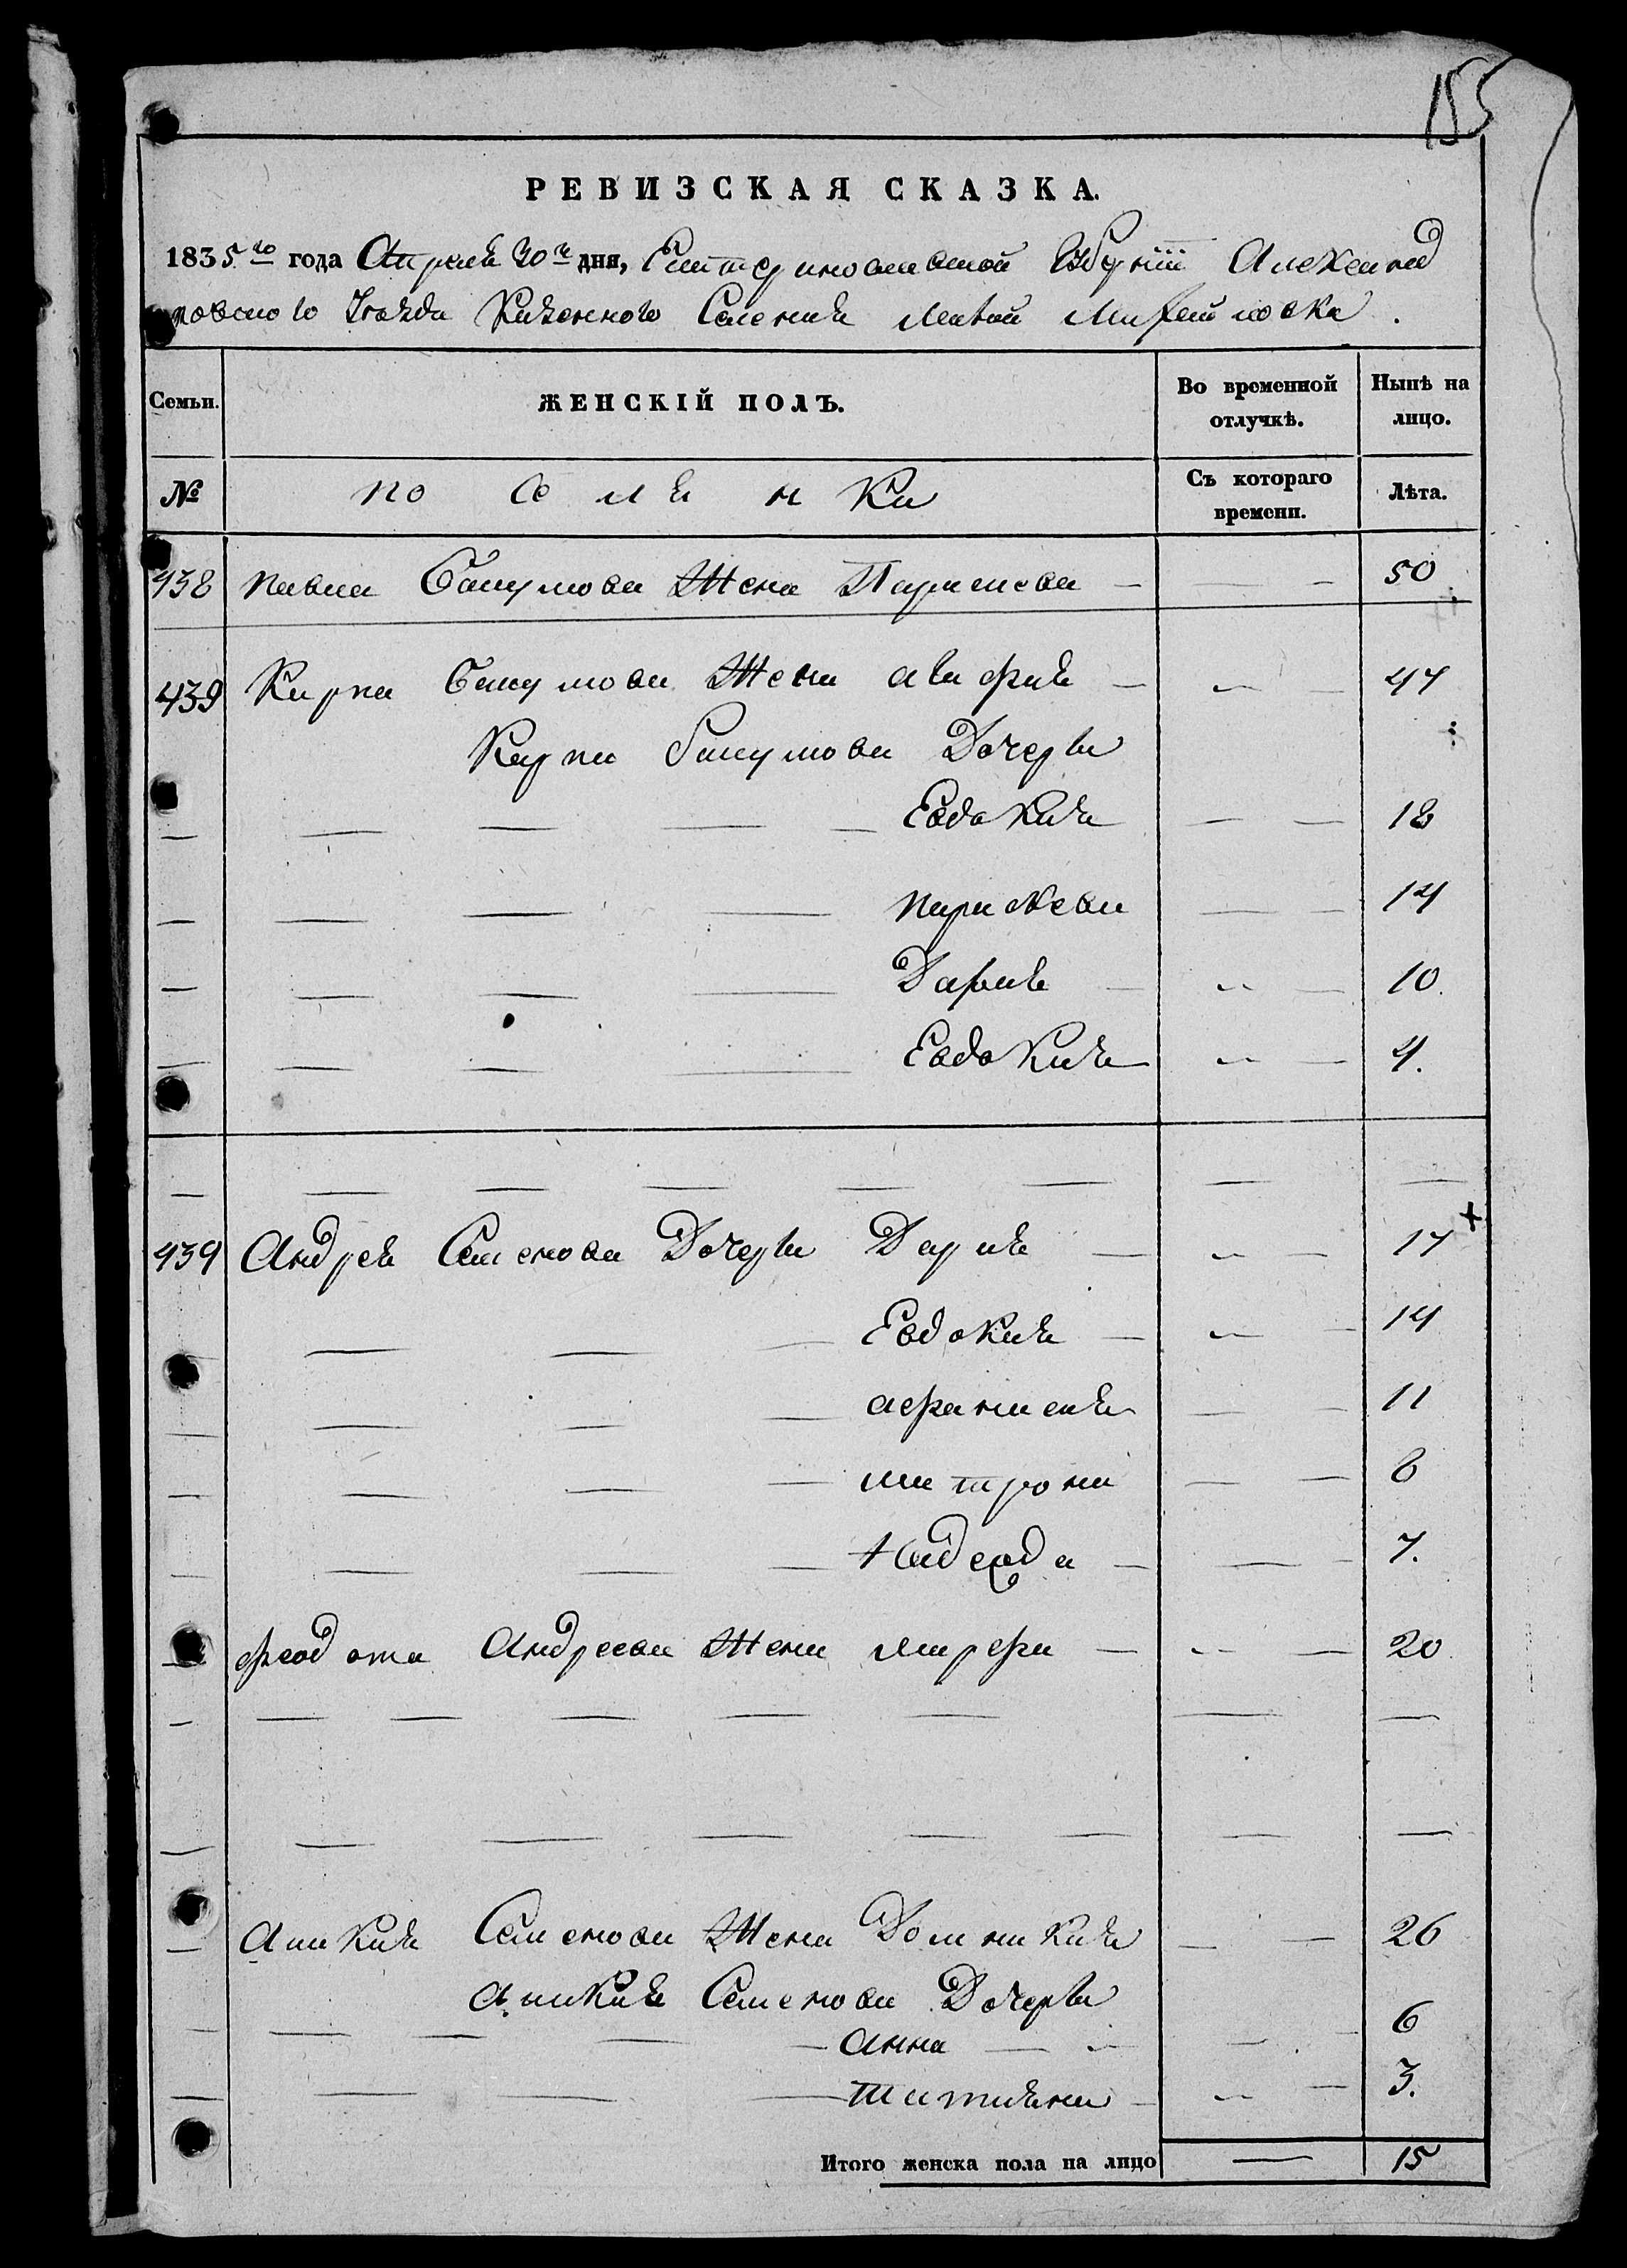 155
РЕВИЗСКАЯ СКАЗКА.
1835го года Апреля 30го дня, Екатеринославской Губернии Александ
ровского Уезда Казенного Селения Малой Михайловки.
Семьи. ЖЕНСКІЙ ПОЛЪ. Во временной отлучкѣ. Нынѣ на лицо.
№ поселянки Съ котораго времени. Лѣта.
438 павла Бакумова Жена Параскева — — — 50
439 Карпа Бакумова Жена — — — 47
Карпа Бакумова Дочери
— — — — — Евдокия — — 18
— — — — параскева — — 14
— — — — Дария — — — 10
— — — — Евдокия — — 4.
— — — — — — — —
439 Андрея Семенова Дочери Дария — — — 17 +
— — — Евдокия — — — 14
— — — — — — 11
— — — — матрона — — 8
— — — — Надежда — — — 7.
— феодота Андреева Жена марфа — — — 20
— — — — — — — —
— — — — — — — —
— Аникия Семенова Жена Домникия — — 26
Аникия Семенова Дочери
— — — — — анна — — — — 6
— — — — татияна — — — 3.
Итого женска пола на лицо — 15